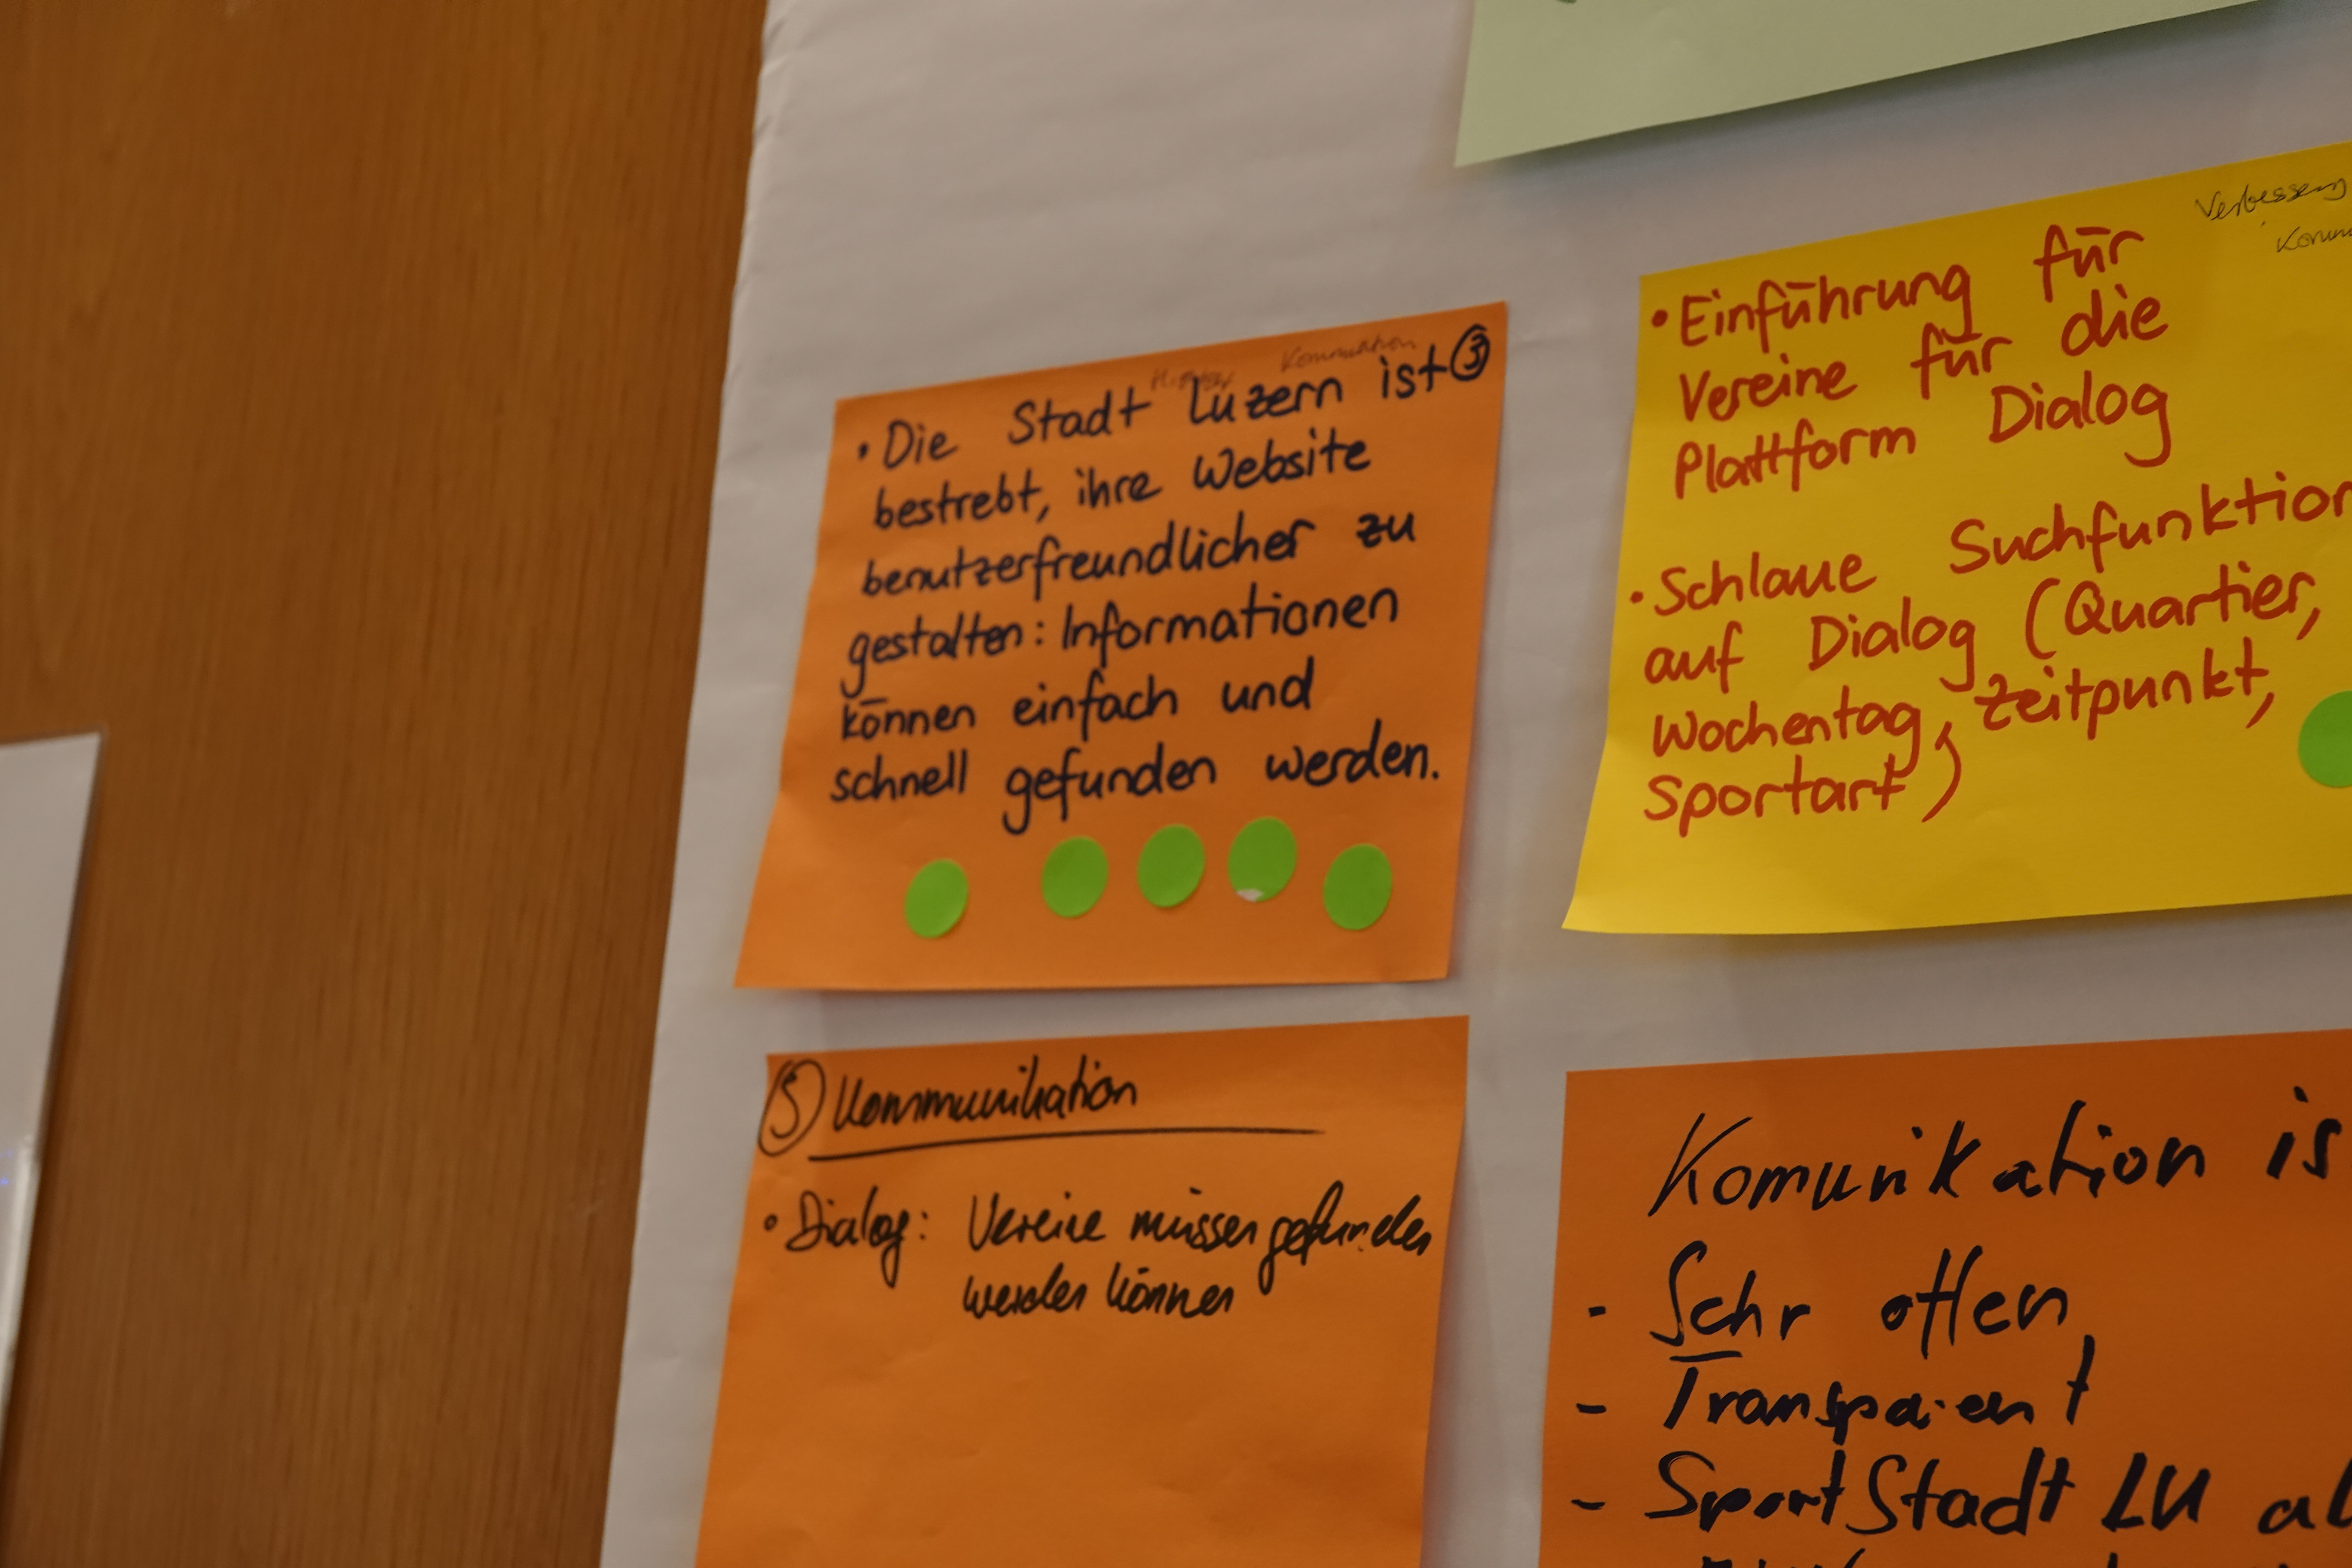 • Die Stadt Luzern ist ③
bestrebt, ihre Website
benutzerfreundlicher zu
gestalten: Informationen
können einfach und
schnell gefunden werden.
Verbesserung
• Einführung für
Vereine für die
Plattform Dialog
• Schlaue Suchfunktion
auf Dialog (Quartier,
Wochentag, Zeitpunkt,
Sportart)
⑤ Kommunikation
• Dialog: Vereine müssen gefunden
werden können
Komunikation is
- Sehr offen
- Transparent
- SportStadt LU al